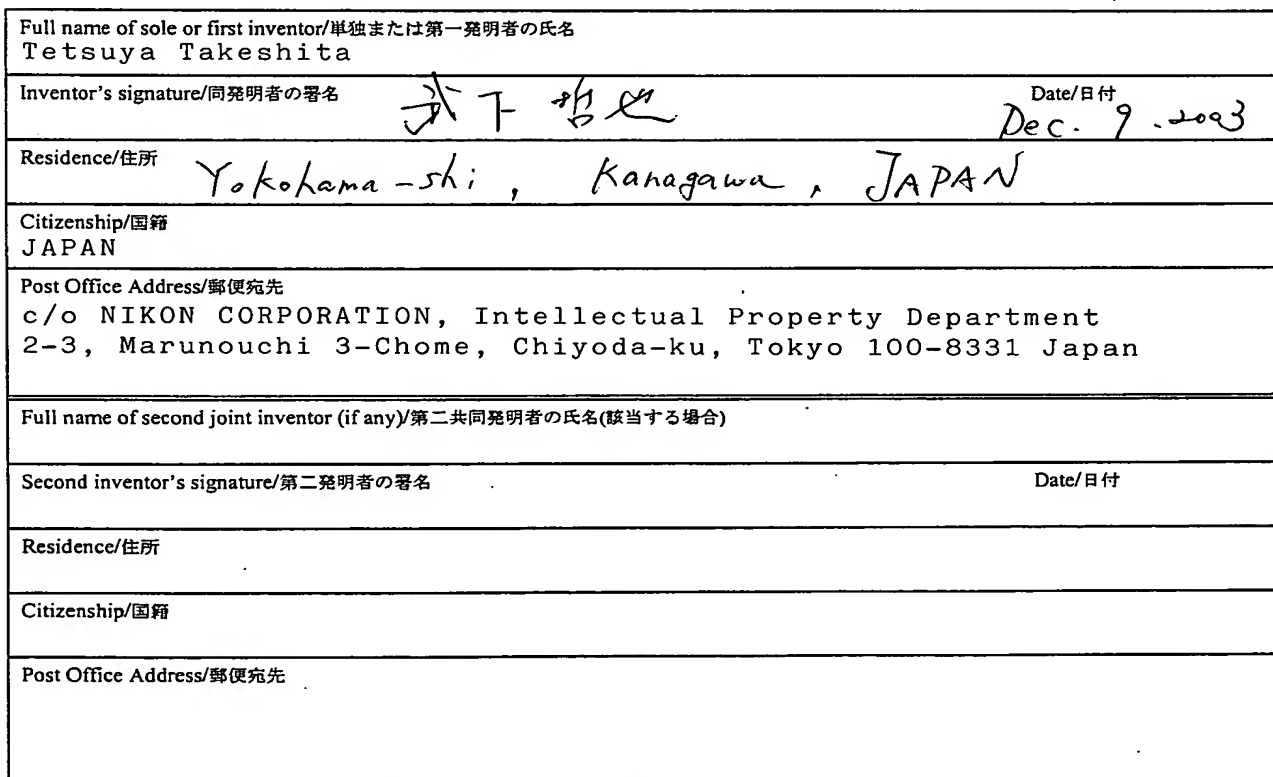 Full name of sole or first inventor/単独または第一発明者の氏名
Tetsuya Takeshita
Inventor's signature/同発明者の署名 武下哲也 Date/日付 Dec. 9. 2003
Residence/住所 Yokohama-shi, Kanagawa, JAPAN
Citizenship/国籍
JAPAN
Post Office Address/郵便宛先
c/o NIKON CORPORATION, Intellectual Property Department
2-3, Marunouchi 3-Chome, Chiyoda-ku, Tokyo 100-8331 Japan
Full name of second joint inventor (if any)/第二共同発明者の氏名(該当する場合)
Second inventor's signature/第二発明者の署名 Date/日付
Residence/住所
Citizenship/国籍
Post Office Address/郵便宛先